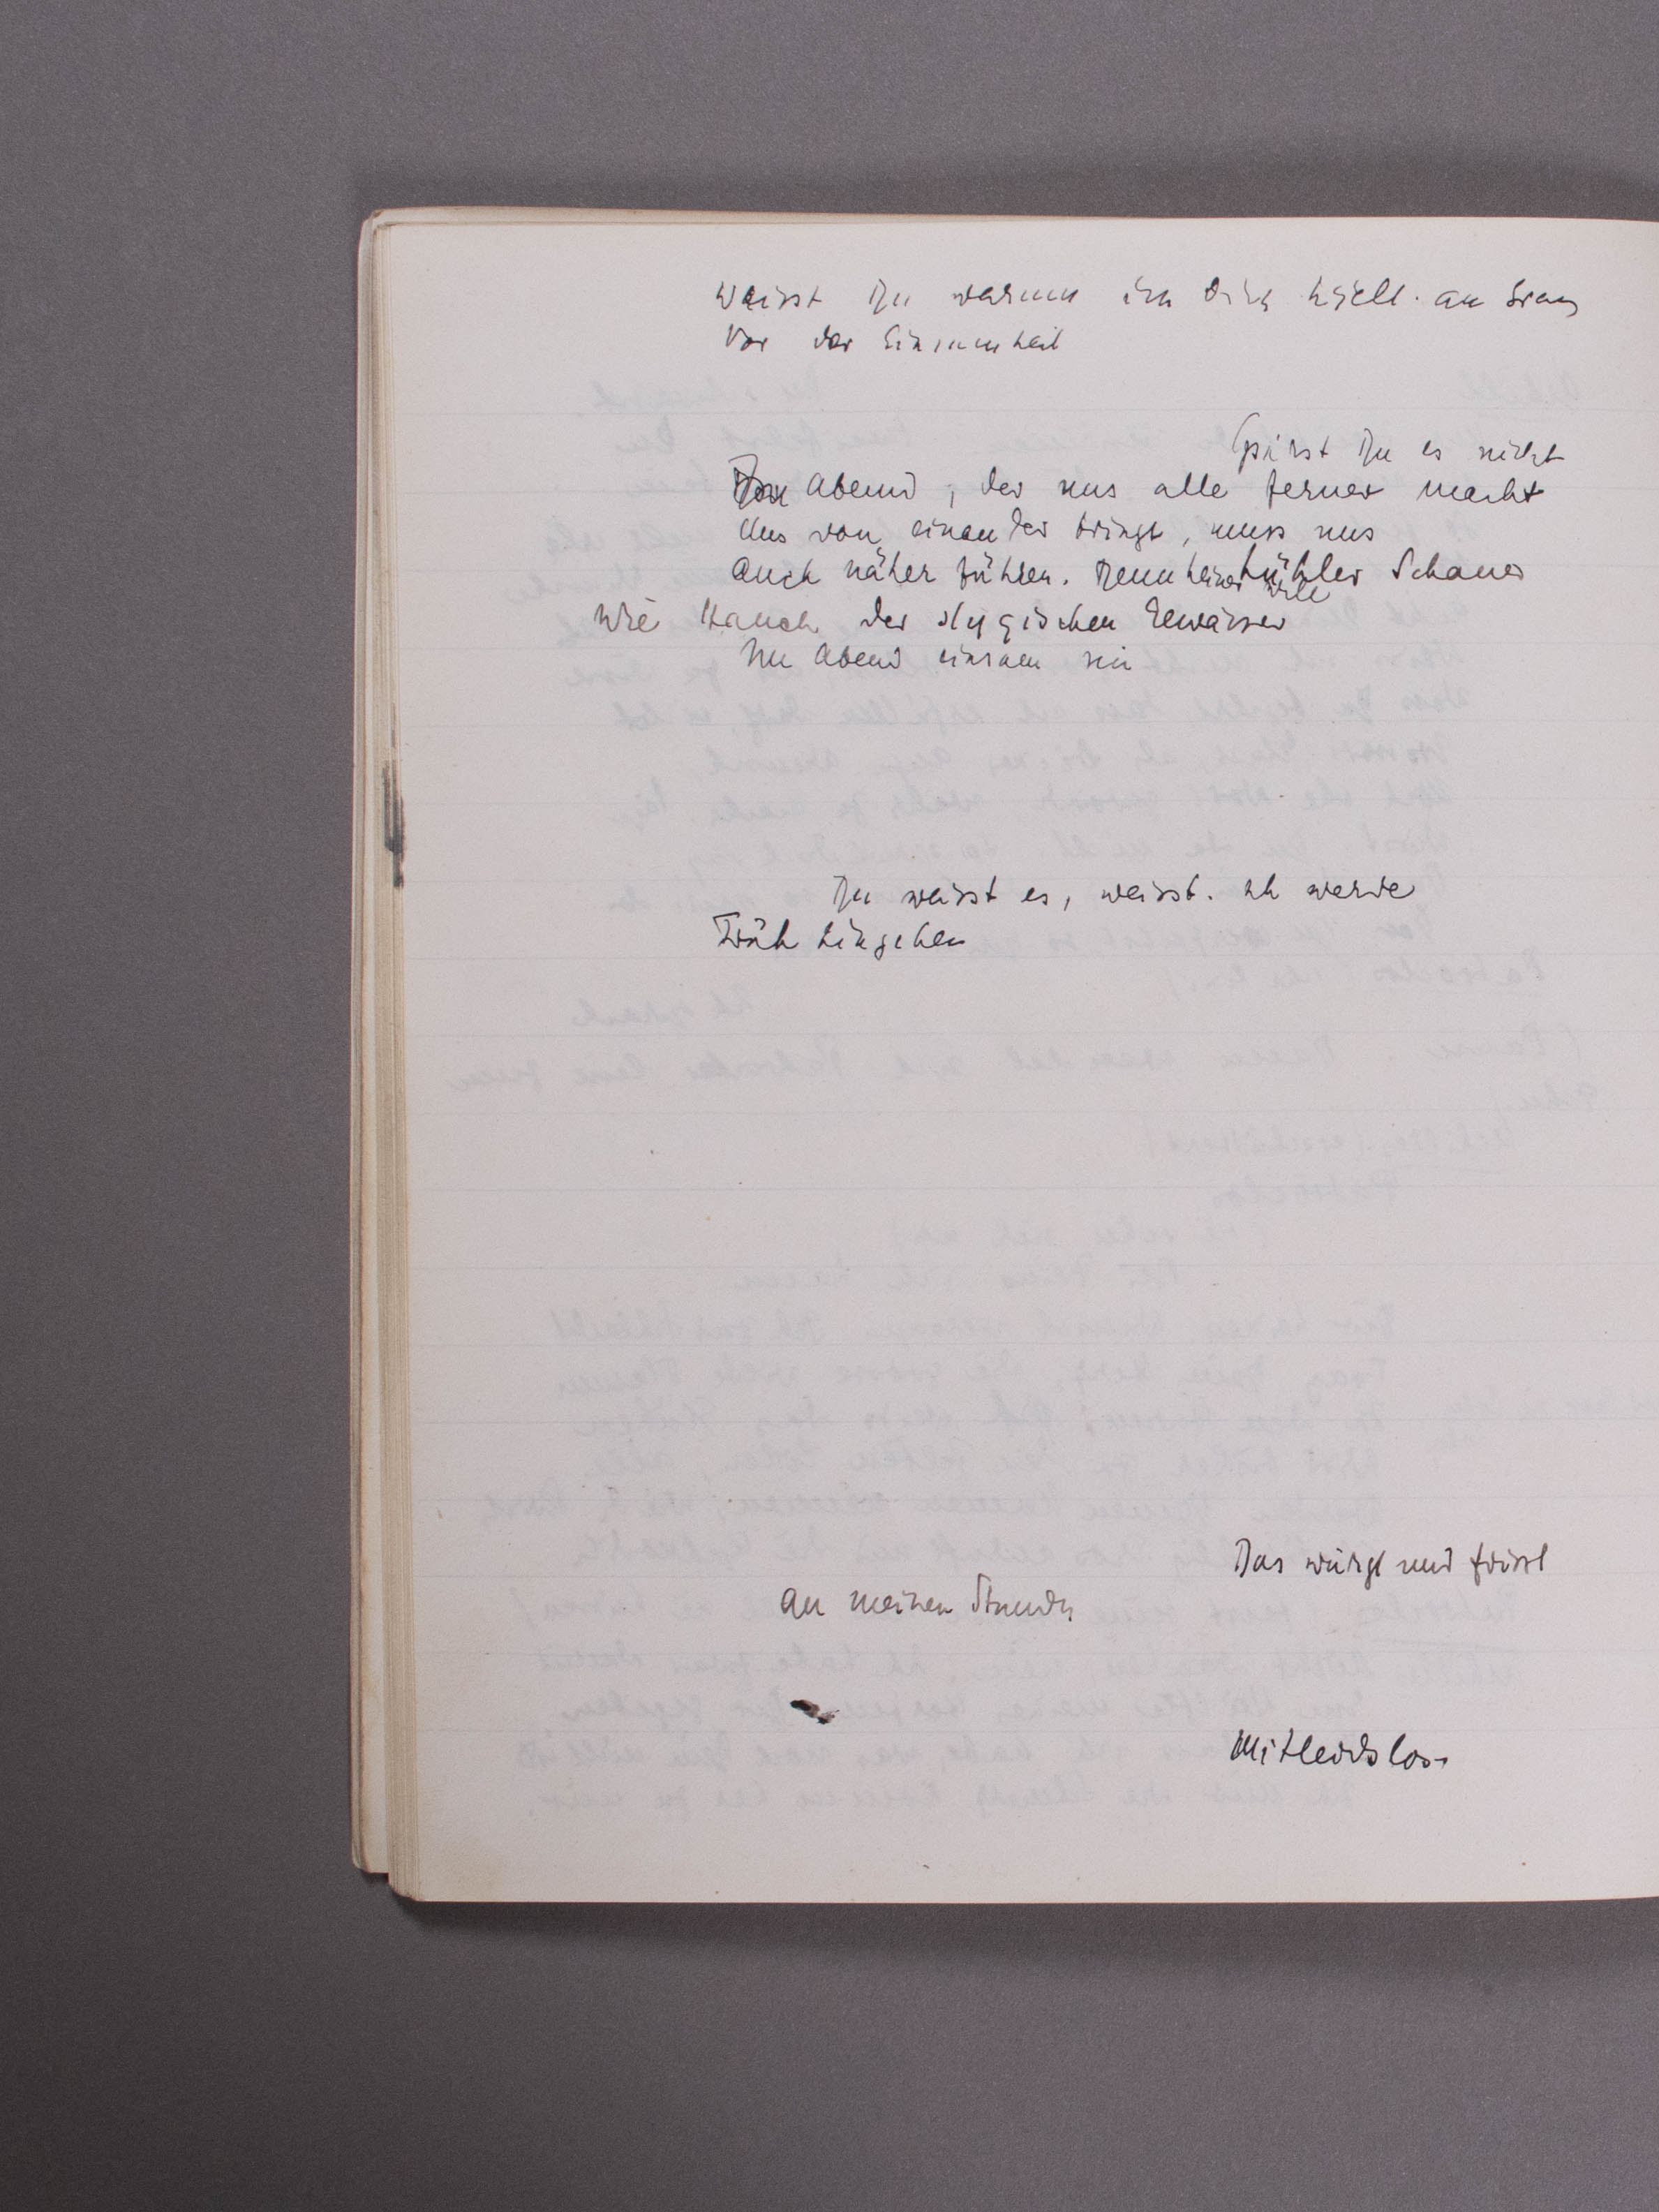 Weisst Du warum ich Dich hielt. aus Grau
Vor der Einsamheit
Spürst Du es nicht
Der Abend, der uns alle ferner macht
Uns von einander bringt, muss uns
Auch näher führen. Denn keiner will
kühler Schauer
Wie Hauch der stygischen Gewässer
Im Abend einsam sein
Du weisst es, weisst. ich werde
Früh hingehen
Das würgt und frisst
An meinen Stunden
Mitleidslos